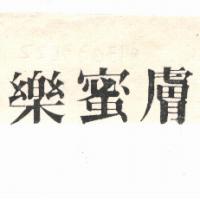 樂蜜膚